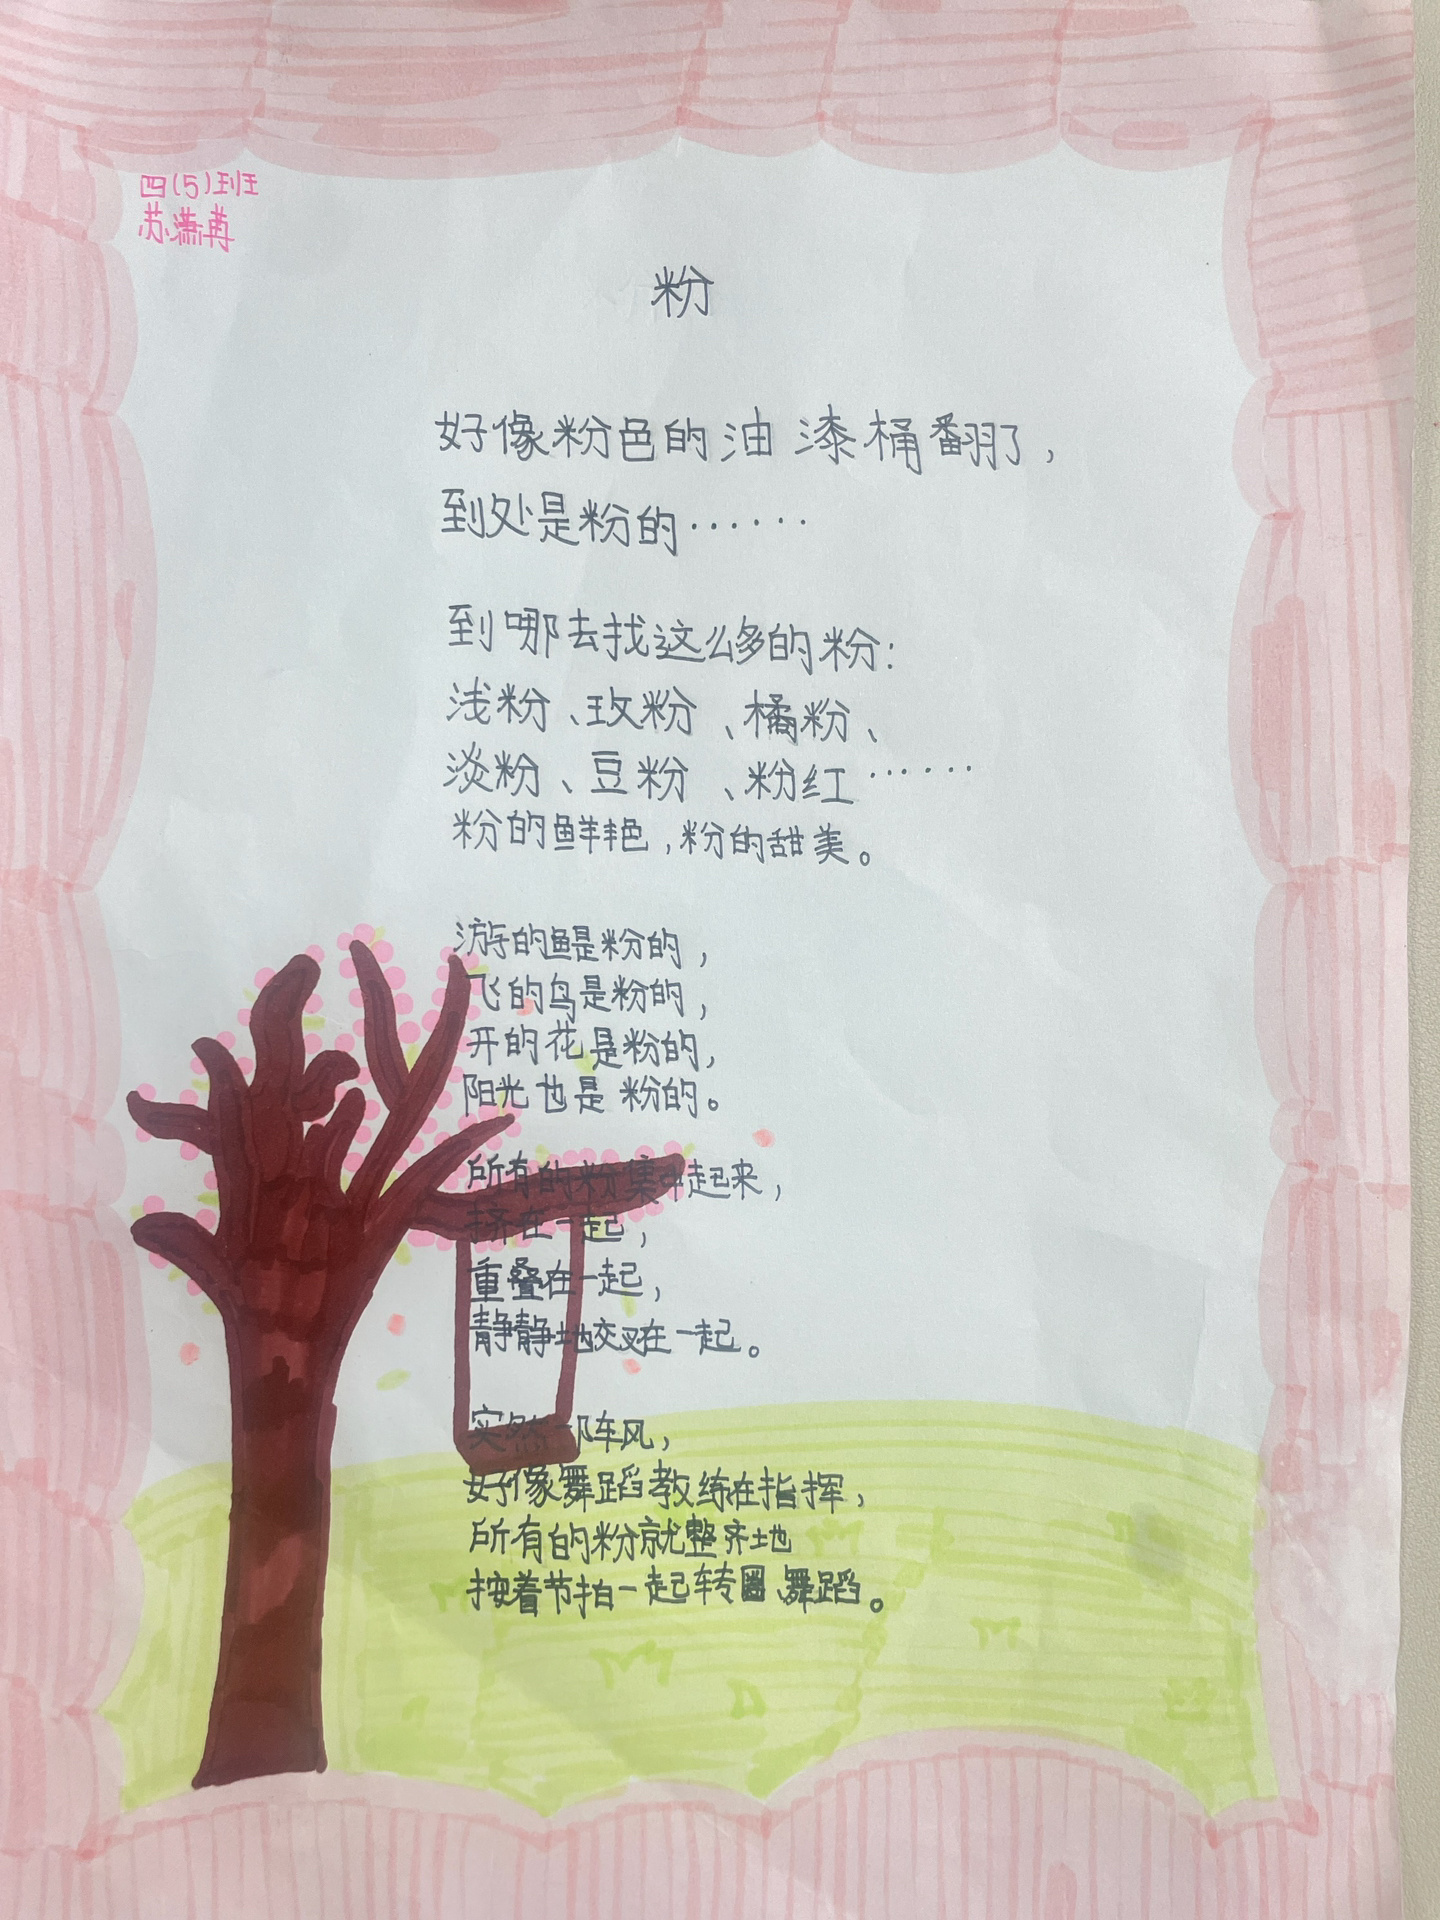 四(5)班
苏潇苒
粉
好像粉色的油漆桶翻了，
到处是粉的……
到哪去找这么多的粉：
浅粉、玫粉、橘粉、
淡粉、豆粉、粉红……
粉的鲜艳，粉的甜美。
游的鱼是粉的，
飞的鸟是粉的，
开的花是粉的，
阳光也是粉的。
所有的粉集中起来，
挤在一起，
重叠在一起，
静静地交叉在一起。
突然一阵风，
好像舞蹈教练在指挥，
所有的粉就整齐地
按着节拍一起转圈、舞蹈。